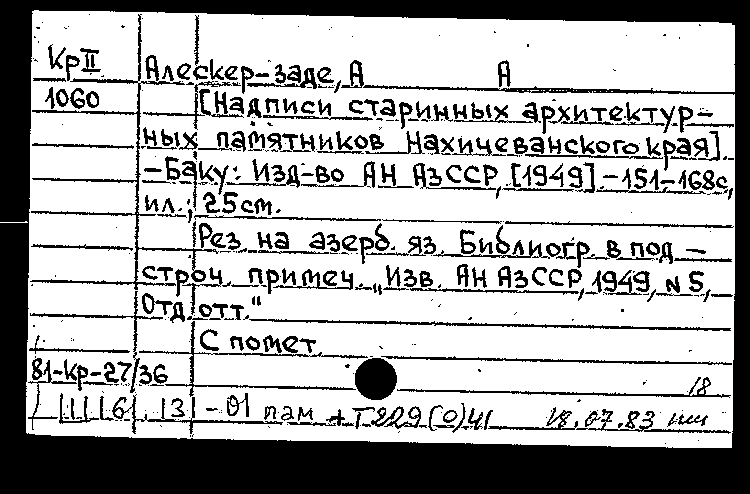 КрII Алескер-заде, А А
1060 [Надписи старинных архитектур-
ных памятников Нахичеванского края].
-Баку: Изд-во АН АзССР, [1949].-151-168с,
ил.; 25см.
Рез. на азерб. яз. Библиогр. в под-
строч. примеч. „Изв. АН АзССР, 1949, N 5,
Отд. отт."
С помет.
81-кр-27/36
18
13 - 01 пам +Т229(0)41 18.07.83